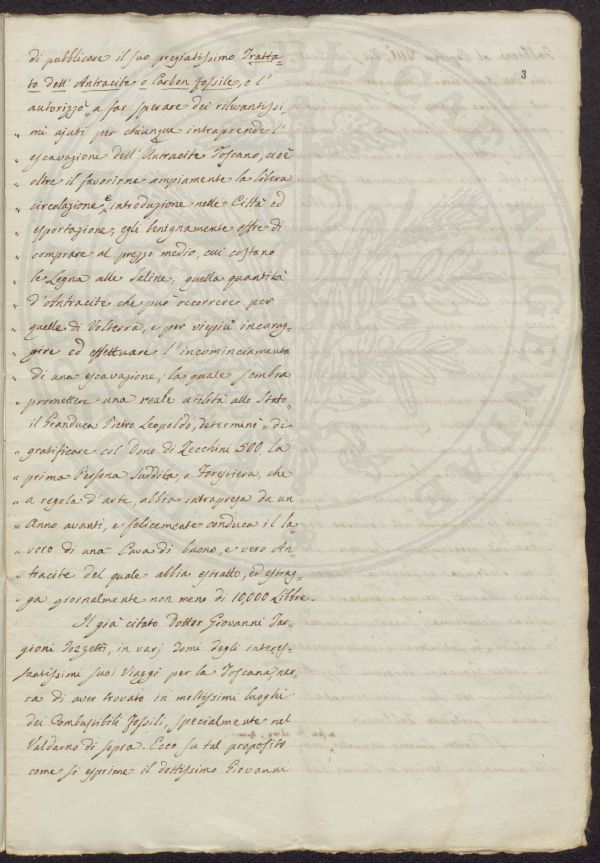 3
di pubblicare il suo pregiatissimo Tratta-
to dell' Antracite o Carbon fossile, e l'
autorizzò „ a far sperare dei rilevantissi-
„ mi ajuti per chiunque intraprende l'
„ escavazione dell' Antracite Toscano, cioè
„ oltre il favorirne ampiamente la libera
„ circolazione e introduzione nelle Città ed
„ esportazione, egli benignamente offre di
„ comprare al prezzo medio, cui costano
„ le Legna alle Saline, quella quantità
„ d'Antracite che può occorrere per
„ quelle di Volterra, e per viepiù incorag-
„ gire ed effettuare l'incominciamento
„ di una escavazione, la quale sembra
„ promettere una reale utilità allo Stato „
il Granduca Pietro Leopoldo, determinò „ di
„ gratificare col Dono di Zecchini 500, la
„ prima Persona Suddita, o Forestiera, che
„ a regola d'arte, abbia intrapresa da un
„ Anno avanti, e felicemente conduca il la-
„ voro di una Cava di buono, e vero An-
„ tracite del quale abbia estratto, ed estrag-
„ ga giornalmente non meno di 10,000 Libbre.
Il già citato Dottor Giovanni Tar-
gioni Tozzetti, in varj tomi degli interes-
santissimi suoi Viaggi per la Toscana nar-
ra di aver trovato in moltissimi luoghi
dei Combustibili fossili, specialmente nel
Valdarno di sopra. Ecco su tal proposito
come si esprime il dottissimo Giovanni